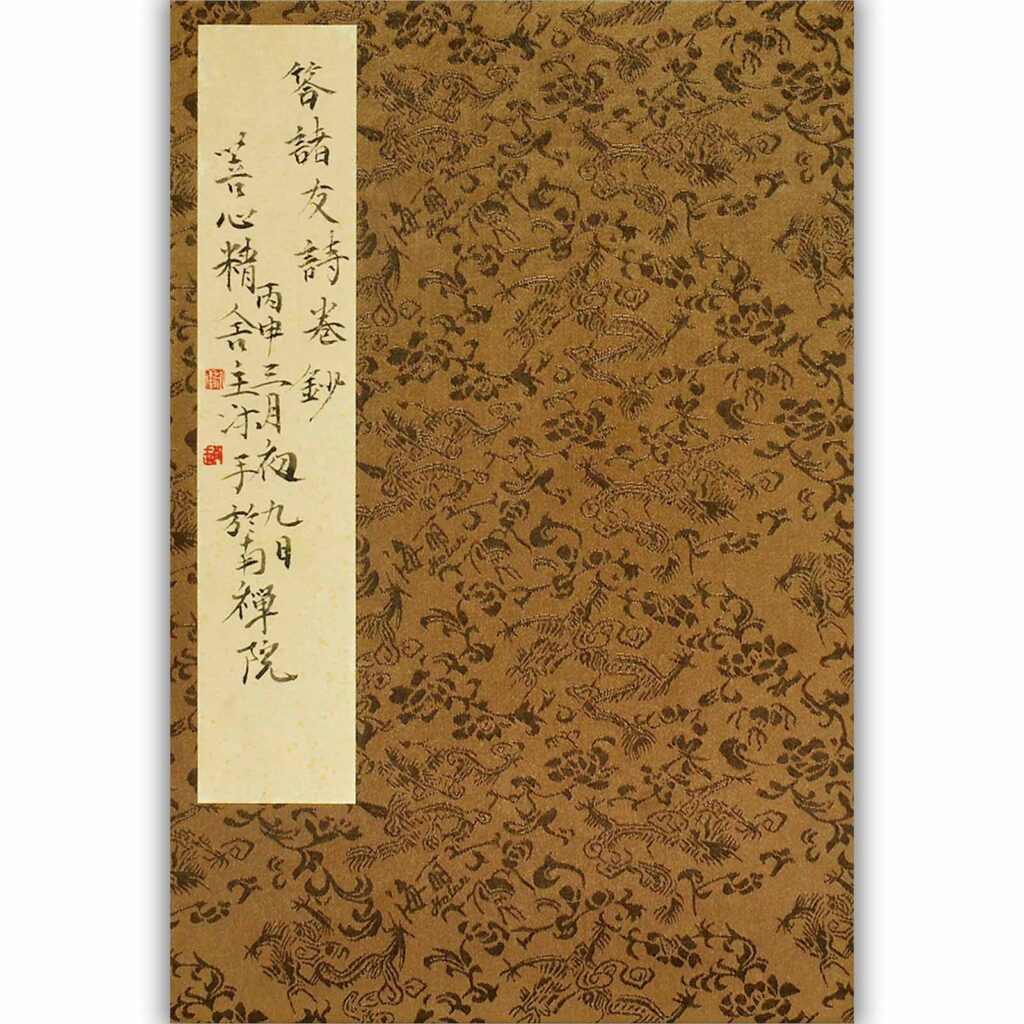 答諸友詩卷鈔
丙申三月初九日
菩心精舍主於南禪院